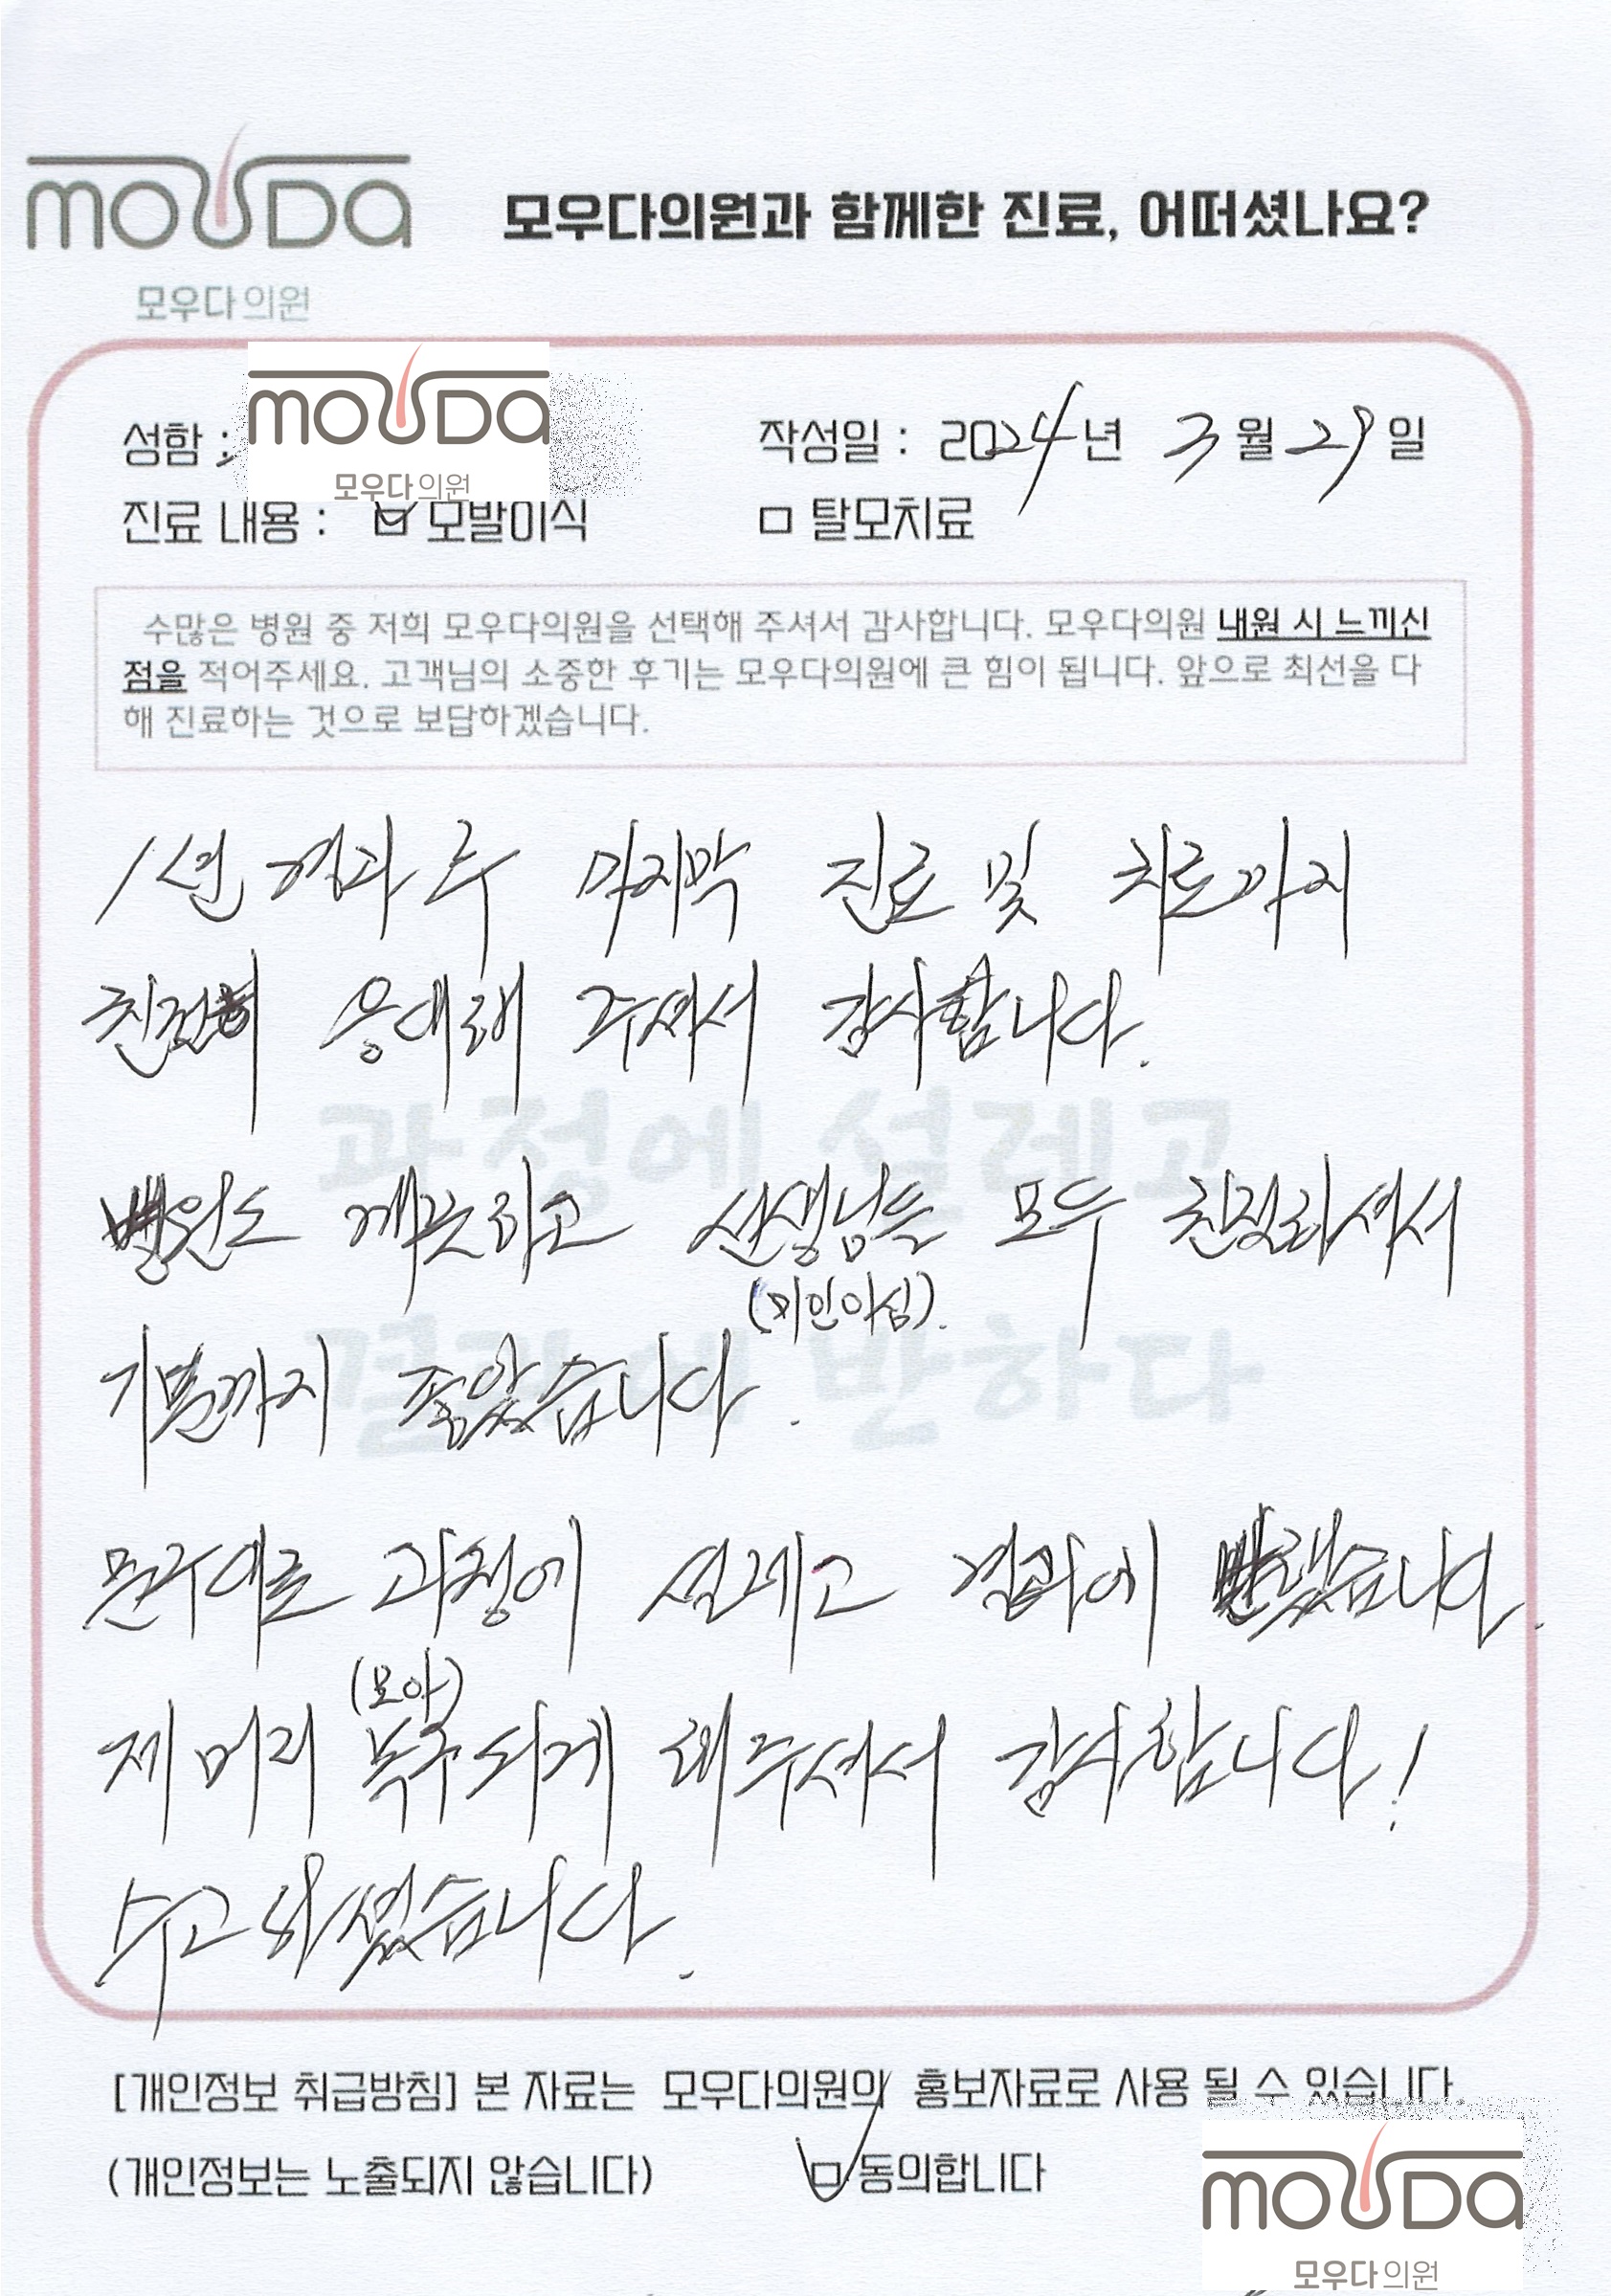 mouda
모우다의원과 함께한 진료, 어떠셨나요?
모우다의원
mouda
모우다의원
성함 :
작성일 : 2024년 3월 29일
진료 내용 : ☑ 모발이식 □ 탈모치료
수많은 병원 중 저희 모우다의원을 선택해 주셔서 감사합니다. 모우다의원 내원 시 느끼신
점을 적어주세요. 고객님의 소중한 후기는 모우다의원에 큰 힘이 됩니다. 앞으로 최선을 다
해 진료하는 것으로 보답하겠습니다.
1년 경과 후 마지막 진료 및 치료까지
친절히 응대해 주셔서 감사합니다.
과정에 설레고
병원도 깨끗하고 선생님들 모두 친절하셔서
(미인이심).
결과에 반하다
기분까지 좋았습니다.
문구대로 과정에 설레고 결과에 반했습니다.
(모아)
제 머리 녹주되게 해주셔서 감사합니다!
수고하셨습니다.
[개인정보 취급방침] 본 자료는 모우다의원의 홍보자료로 사용 될 수 있습니다.
(개인정보는 노출되지 않습니다) ☑ 동의합니다
mouda
모우다의원